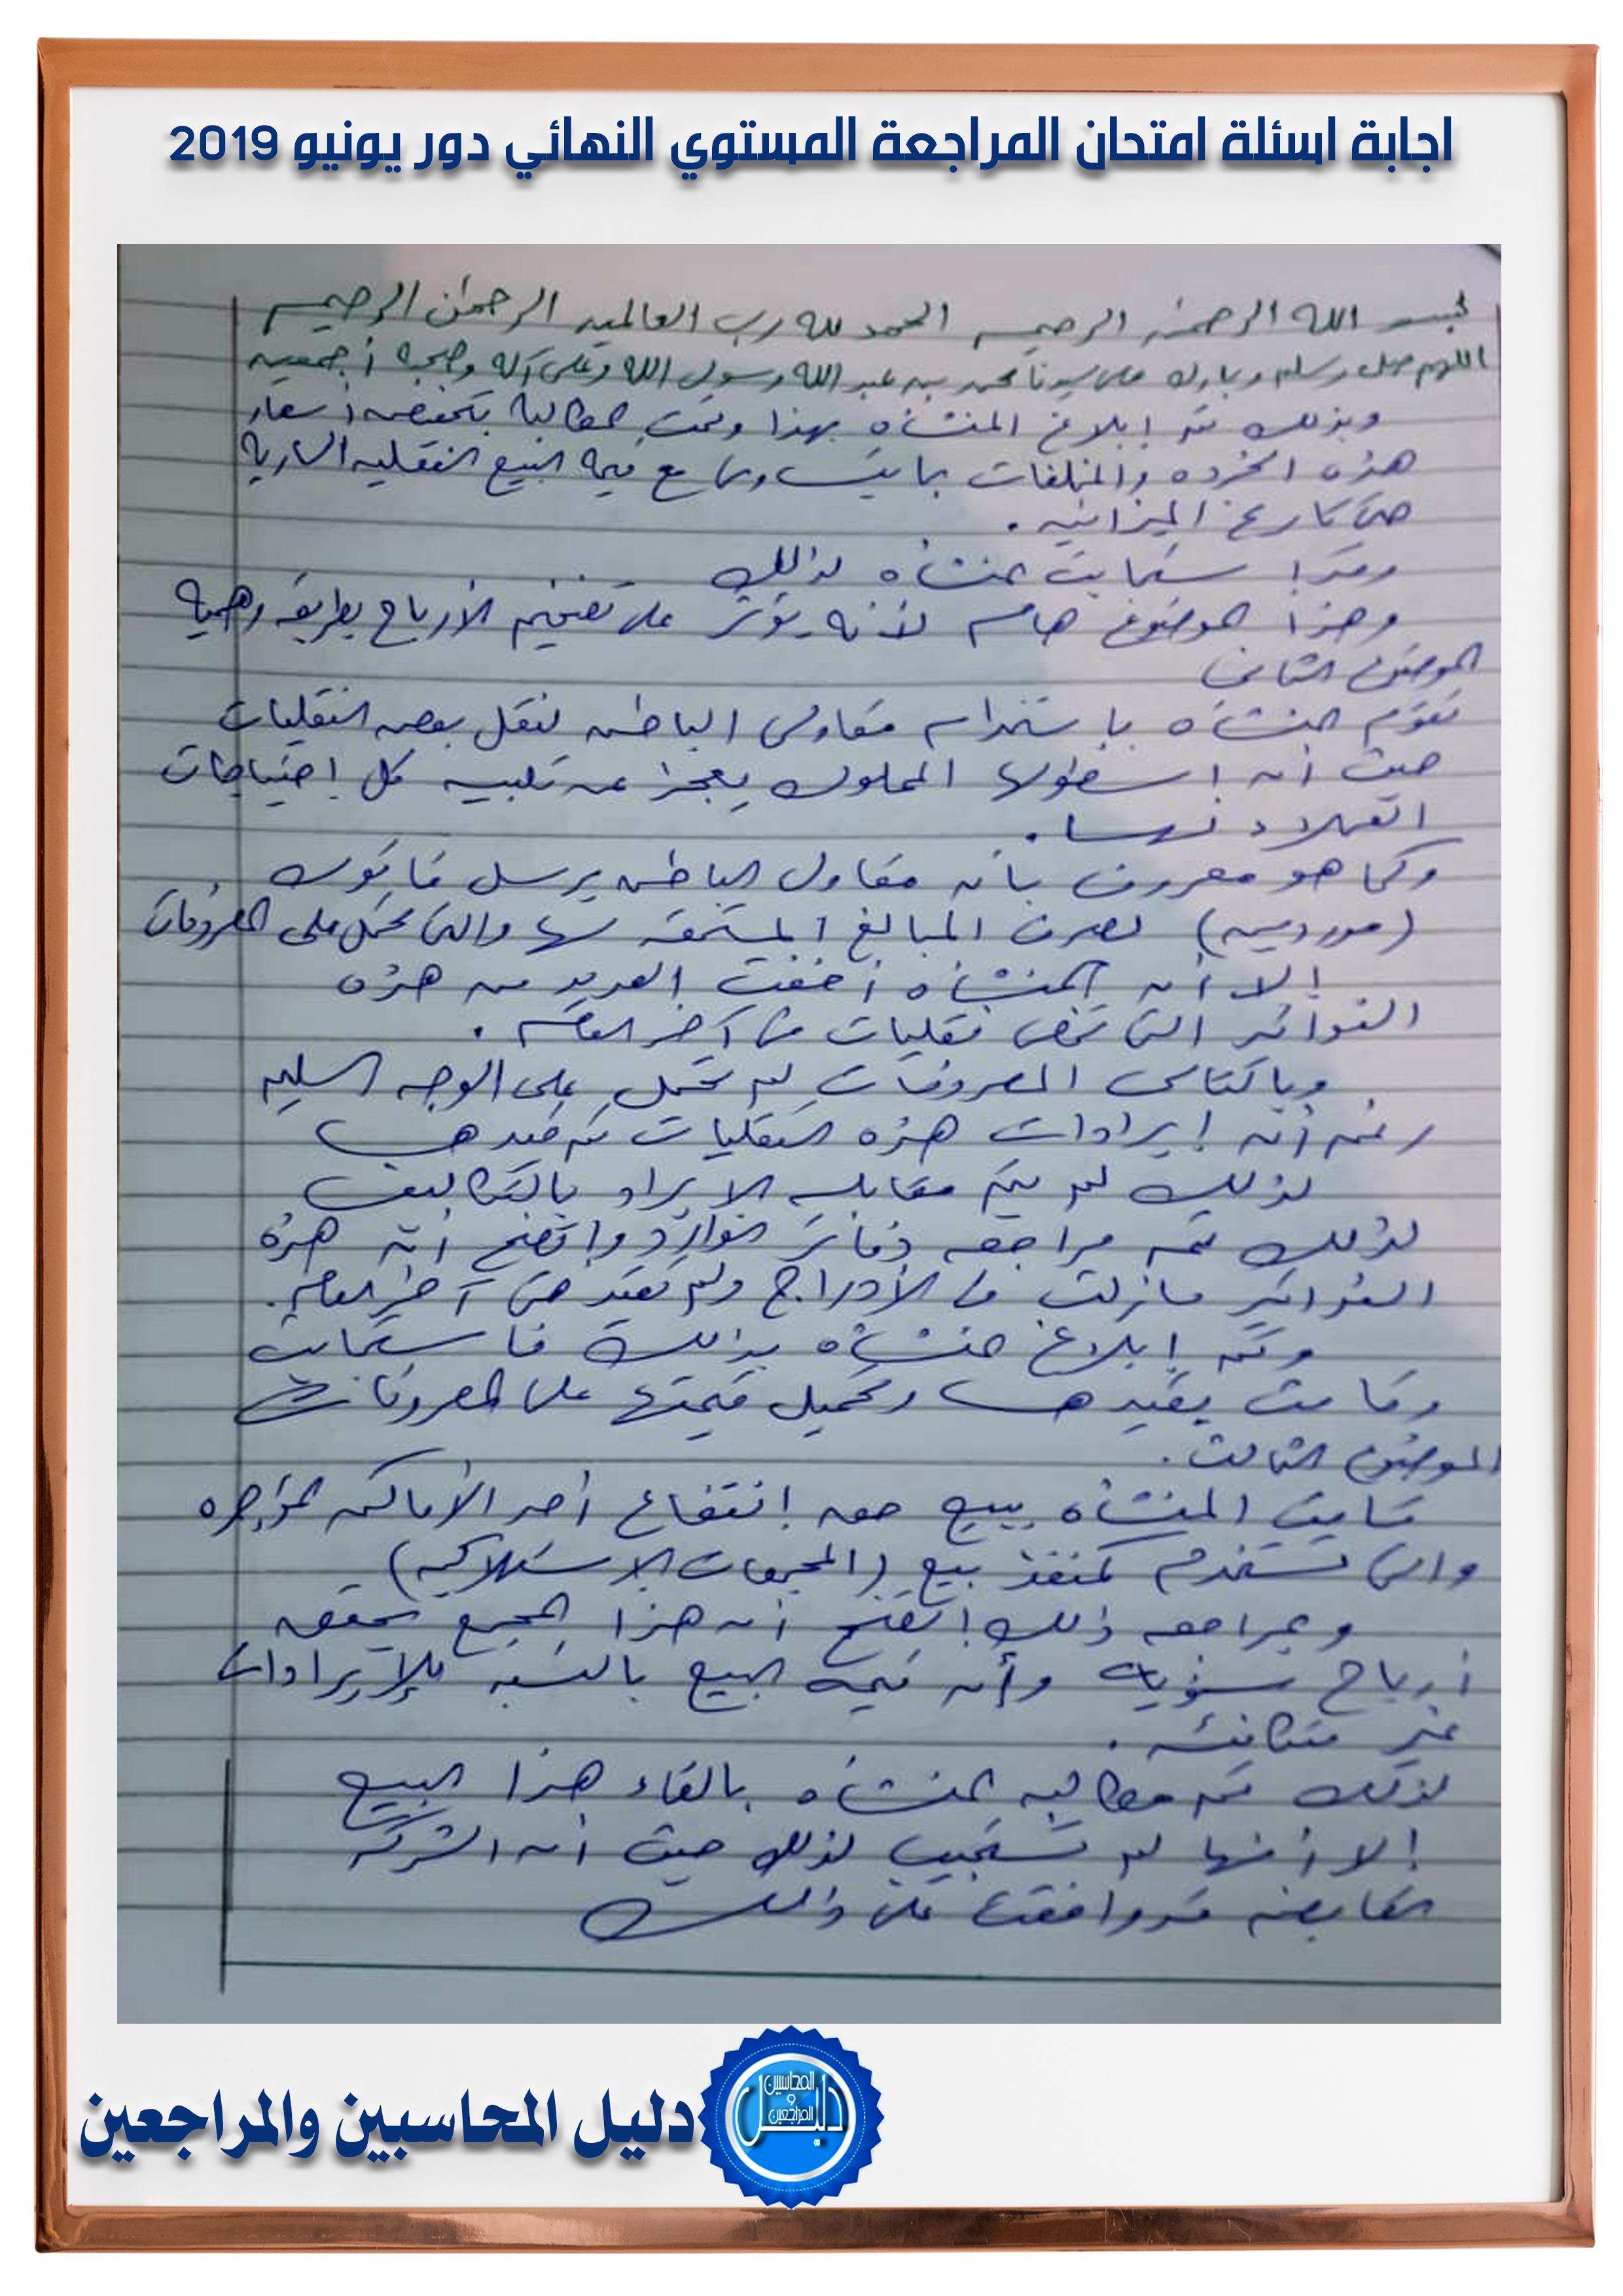 اجابة اسئلة امتحان المراجعة المستوي النهائي دور يونيو 2019
بسم الله الرحمن الرحيم الحمد لله رب العالمين الرحمن الرحيم
اللهم صل وسلم وبارك على سيدنا محمد بن عبد الله رسول الله وعلى آله وصحبه أجمعين
وبذلك تم إبلاغ المنشأه بهذا وتمت المطالبة بتخفيض أسعار
هذه الخرده والمخلفات بما يتساوى مع قيمة البيع الفعليه الساريه
فى تاريخ الميزانيه .
وقد استجابت المنشأه لذلك
وهذا الموضوع هام لأنه يؤثر على تضخيم الأرباح بطريقه وهميه
الموضوع الثانى
تقوم المنشأه باستخدام مقاولى الباطن لنقل بعض النقليات
حيث أن اسطولها المملوك يعجز عن تلبيه كل إحتياجات
العملاء .
وكما هو معروف بأن مقاول الباطن يرسل فاتورة
(موردين) لصرف المبالغ المستحقه لها والتى تحمل على المصروفات
إلا أن المنشأه أخفت العديد من هذه
الفواتير التى تخص نقليات فى آخر العام .
وبالتالى المصروفات لم تحمل على الوجه السليم
رغم أن إيرادات هذه النقليات تم قيدها
لذلك لم يتم مقابله الايراد بالتكاليف
لذلك تم مراجعه دفاتر الوارد واتضح أن هذه
الفواتير مازلت فى الأدراج ولم تقيد حتى آخر العام .
وتم إبلاغ المنشأه بذلك فاستجابت
وقامت بقيدها وتحميل قيمتها على المصروفات
الموضوع الثالث .
قامت المنشأه ببيع حق إنتفاع أحد الأماكن المؤجره
والتى تستخدم كمنفذ بيع (المجمعات الاستهلاكيه)
وبمراجعه ذلك إتضح أن هذا المجمع يحقق
أرباح سنويه وأن قيمه البيع بالنسبه للإيرادات
غير متكافئه .
لذلك تم مطالبه المنشأه بالغاء هذا البيع
إلا أنها لم تستجيب لذلك حيث أن الشركه
القابضه قد وافقت على ذلك
دليل المحاسبين والمراجعين
دليل
المحاسبين
و
المراجعين